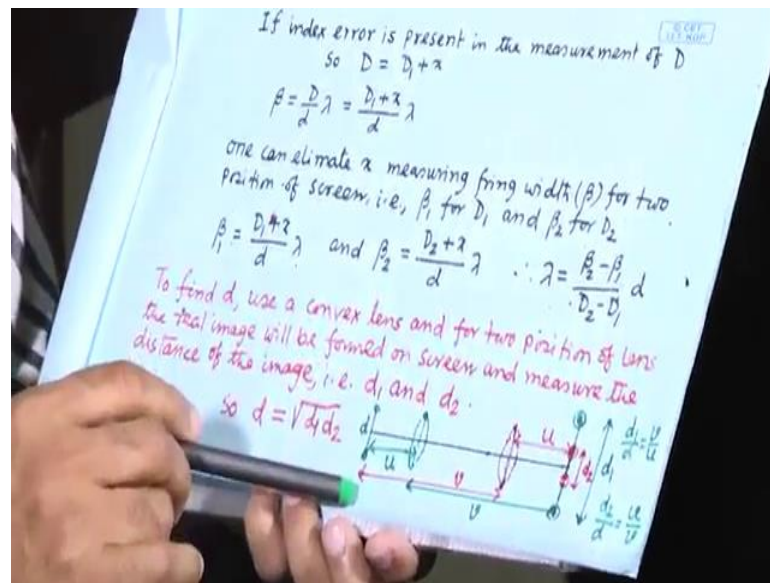 © CET
I.I.T. KGP
If index error is present in the measurement of D
so D = D₁ + x
β = D/d λ = (D₁ + x)/d λ
one can elimate x measuring fring width (β) for two
position of screen, i.e., β₁ for D₁ and β₂ for D₂
β₁ = (D₁ + x)/d λ and β₂ = (D₂ + x)/d λ ∴ λ = (β₂ - β₁)/(D₂ - D₁) d
To find d, use a convex lens and for two position of lens
the real image will be formed on screen and measure the
distance of the image, i.e. d₁ and d₂.
so d = √d₁d₂
d u v u v d₂ d₁ d₁/d = v/u
d₂/d = u/v